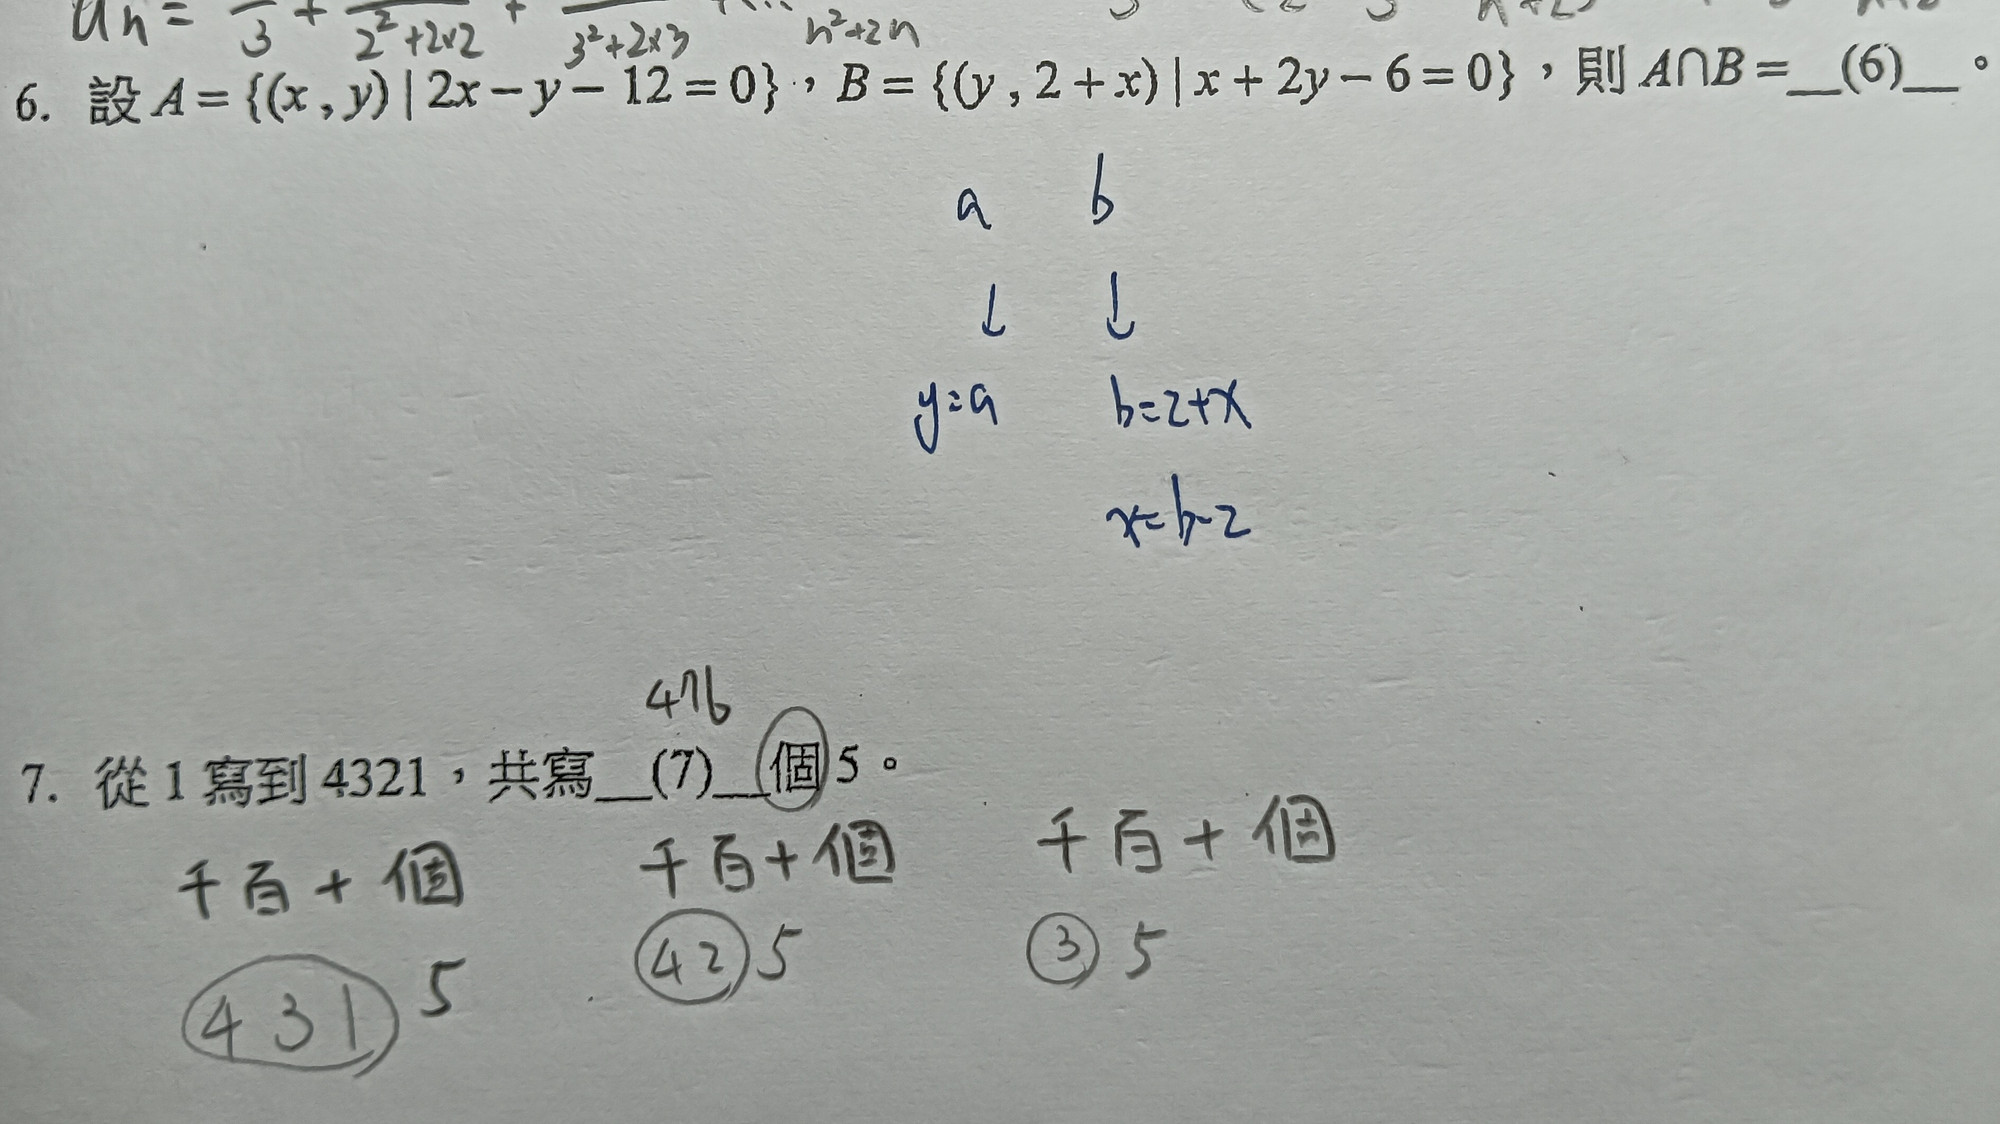 an = 3 + 2²+2×2 + 3²+2×3 n²+2n
6. 設 A = {(x , y) | 2x − y − 12 = 0}，B = {(y , 2 + x) | x + 2y − 6 = 0}，則 A∩B = __(6)__。
a b
↓ ↓
y=a b=2+x
x=b-2
476
7. 從 1 寫到 4321，共寫__(7)__個 5。
千百十個 千百十個 千百十個
431 5 42 5 3 5